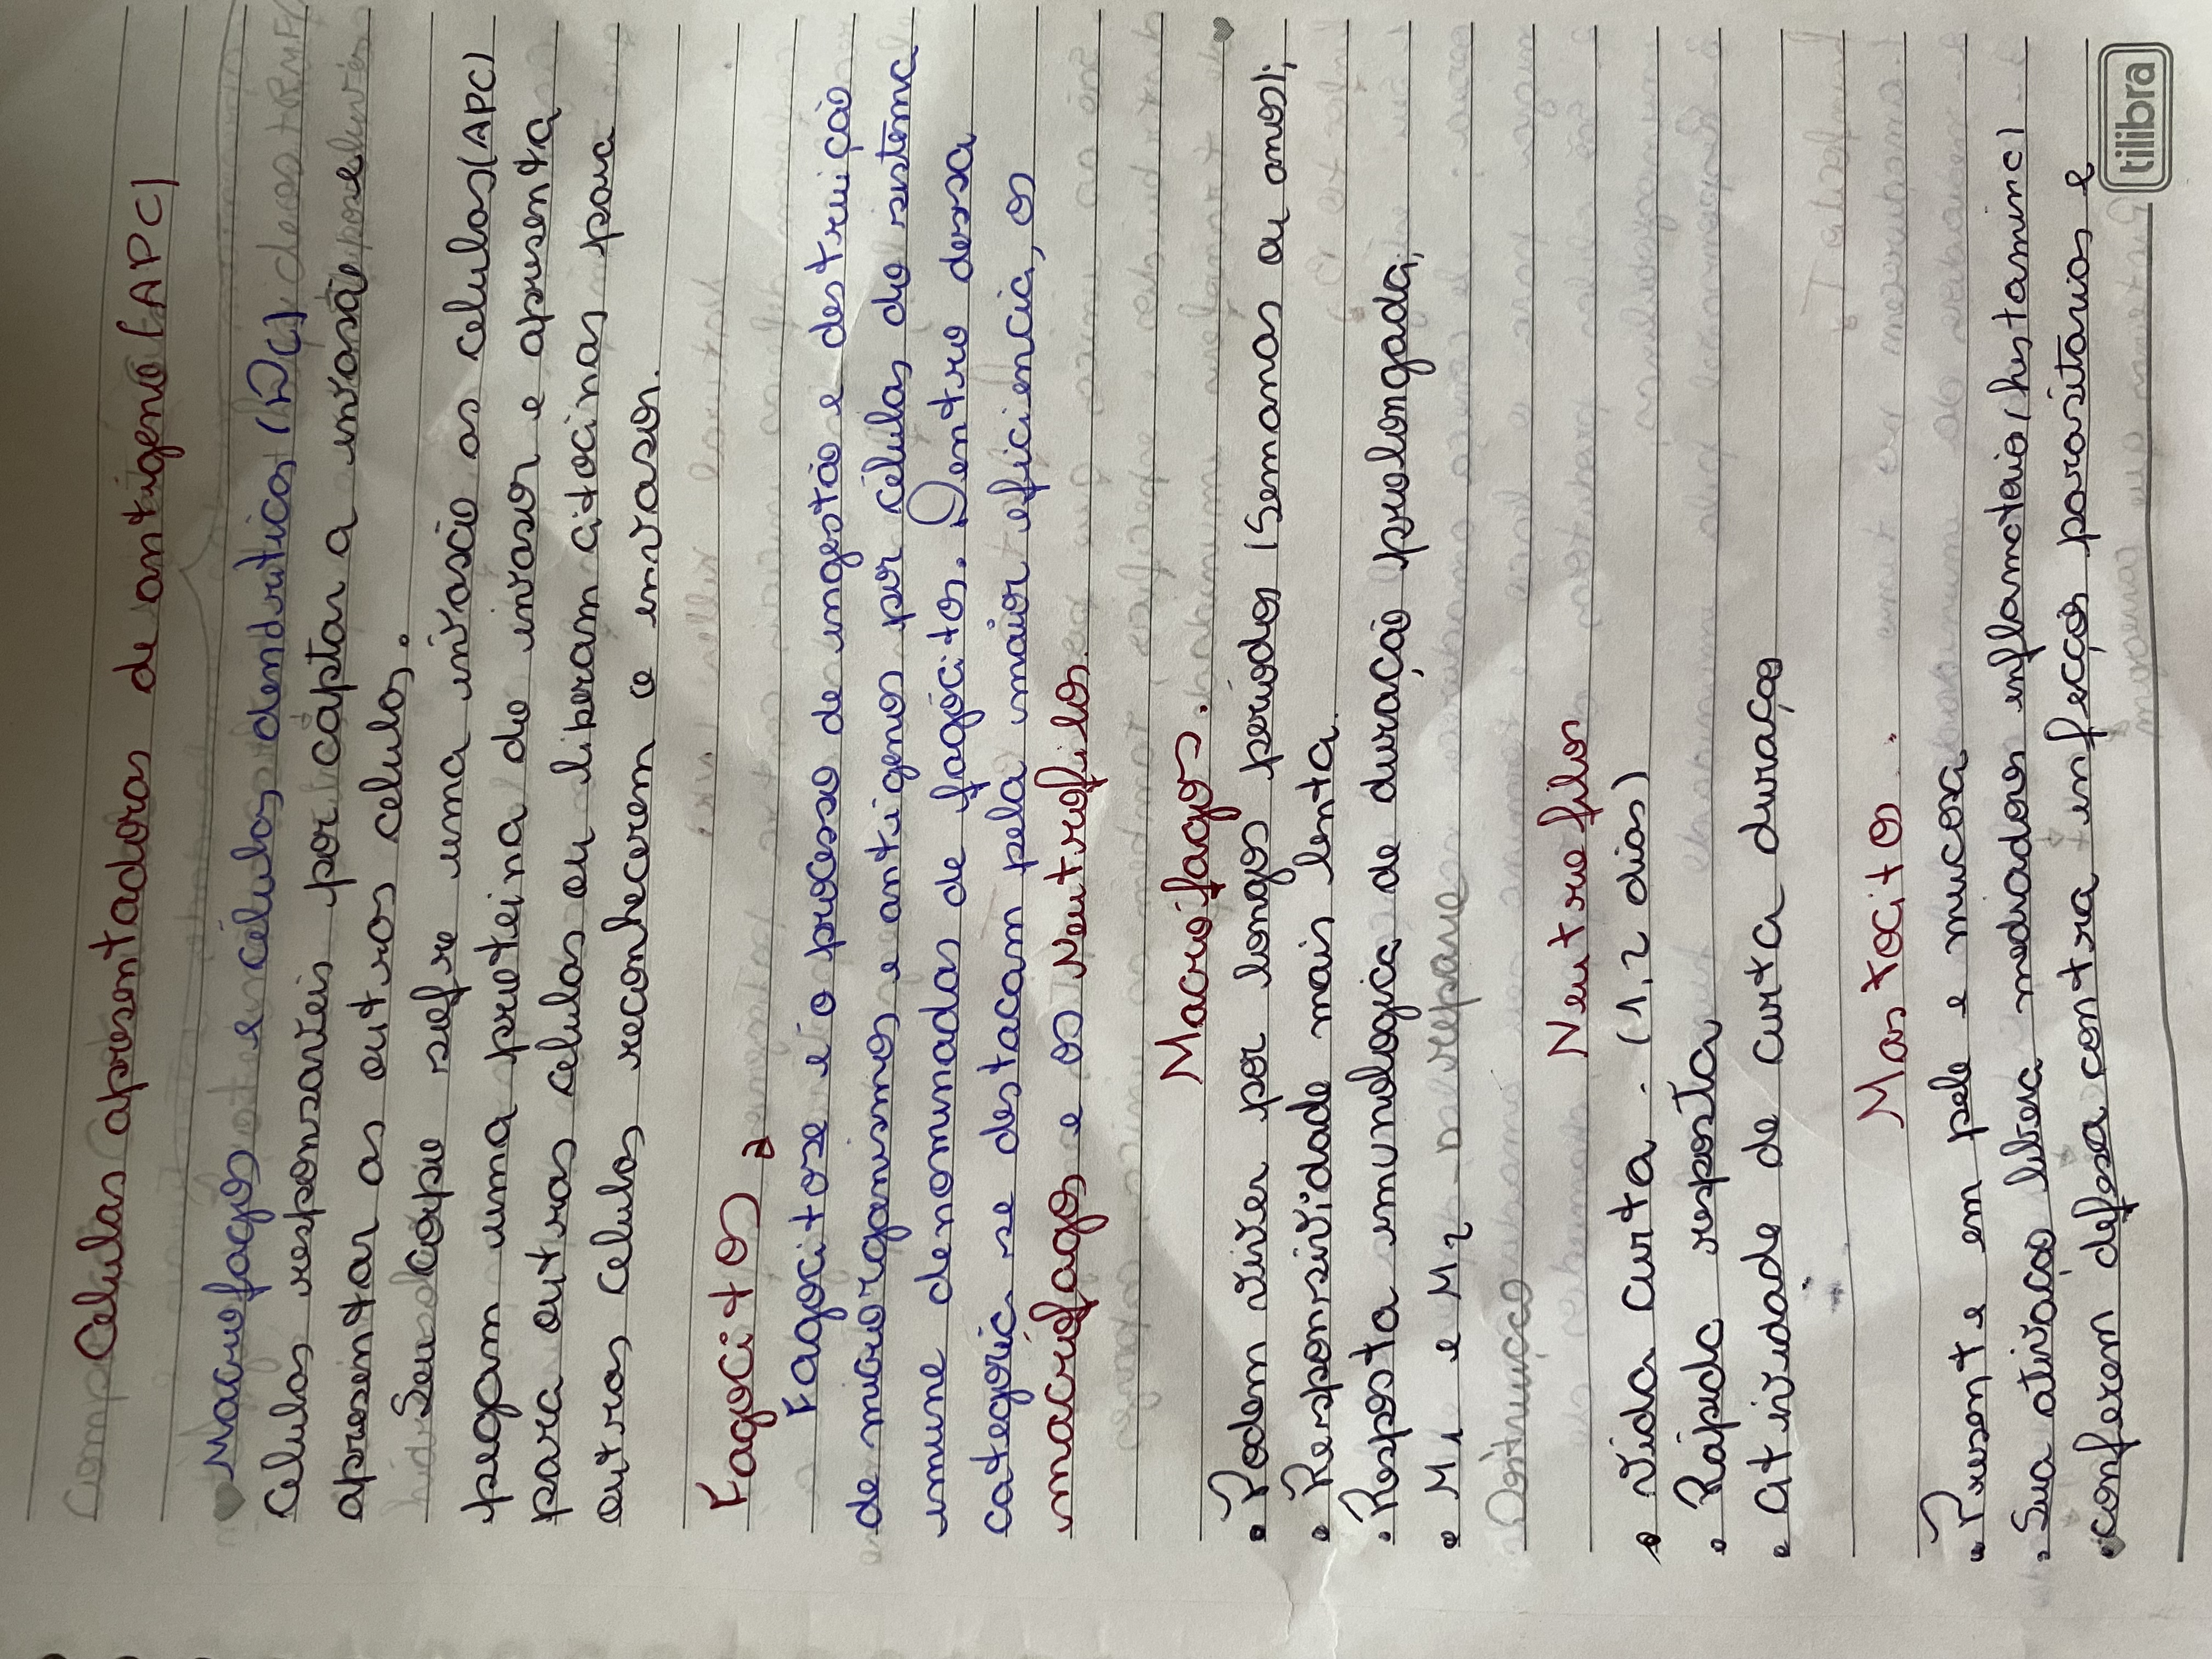 Celulas apresentadoras de antigeno (APC)
Macrofagos e células dendríticas (DC)
Celulas responsaveis por captar a invasão e
apresentar as outras celulas.
Seu corpo sofre uma invasão as celulas (APC)
pegam uma proteina do invasor e apresenta
para outras celulas ou liberam citocinas para
outras celulas reconhecerem o invasor.
Fagocitos
Fagocitose é o processo de ingestão e destruição
de microrganismos e antigenos por células do sistema
imune denominadas de fagócitos. Dentro dessa
categoria se destacam pela maior eficiencia, os
macrófagos e os Neutrofilos.
Macrófagos.
• Podem viver por longos periodos (Semanas ou anos);
• Responsividade mais lenta.
• Resposta imunologica de duração prolongada;
• M1 e M2 → reparo
Destruição
Neutrofilos
• Vida curta. (1,2 dias)
• Rápida resposta
• Atividade de curta duração
Mastocitos.
• Presente em pele e mucosa
• Sua ativação libera mediadores inflamatorio (histamina)
• conferem defesa contra infecções parasitarias e
tilibra